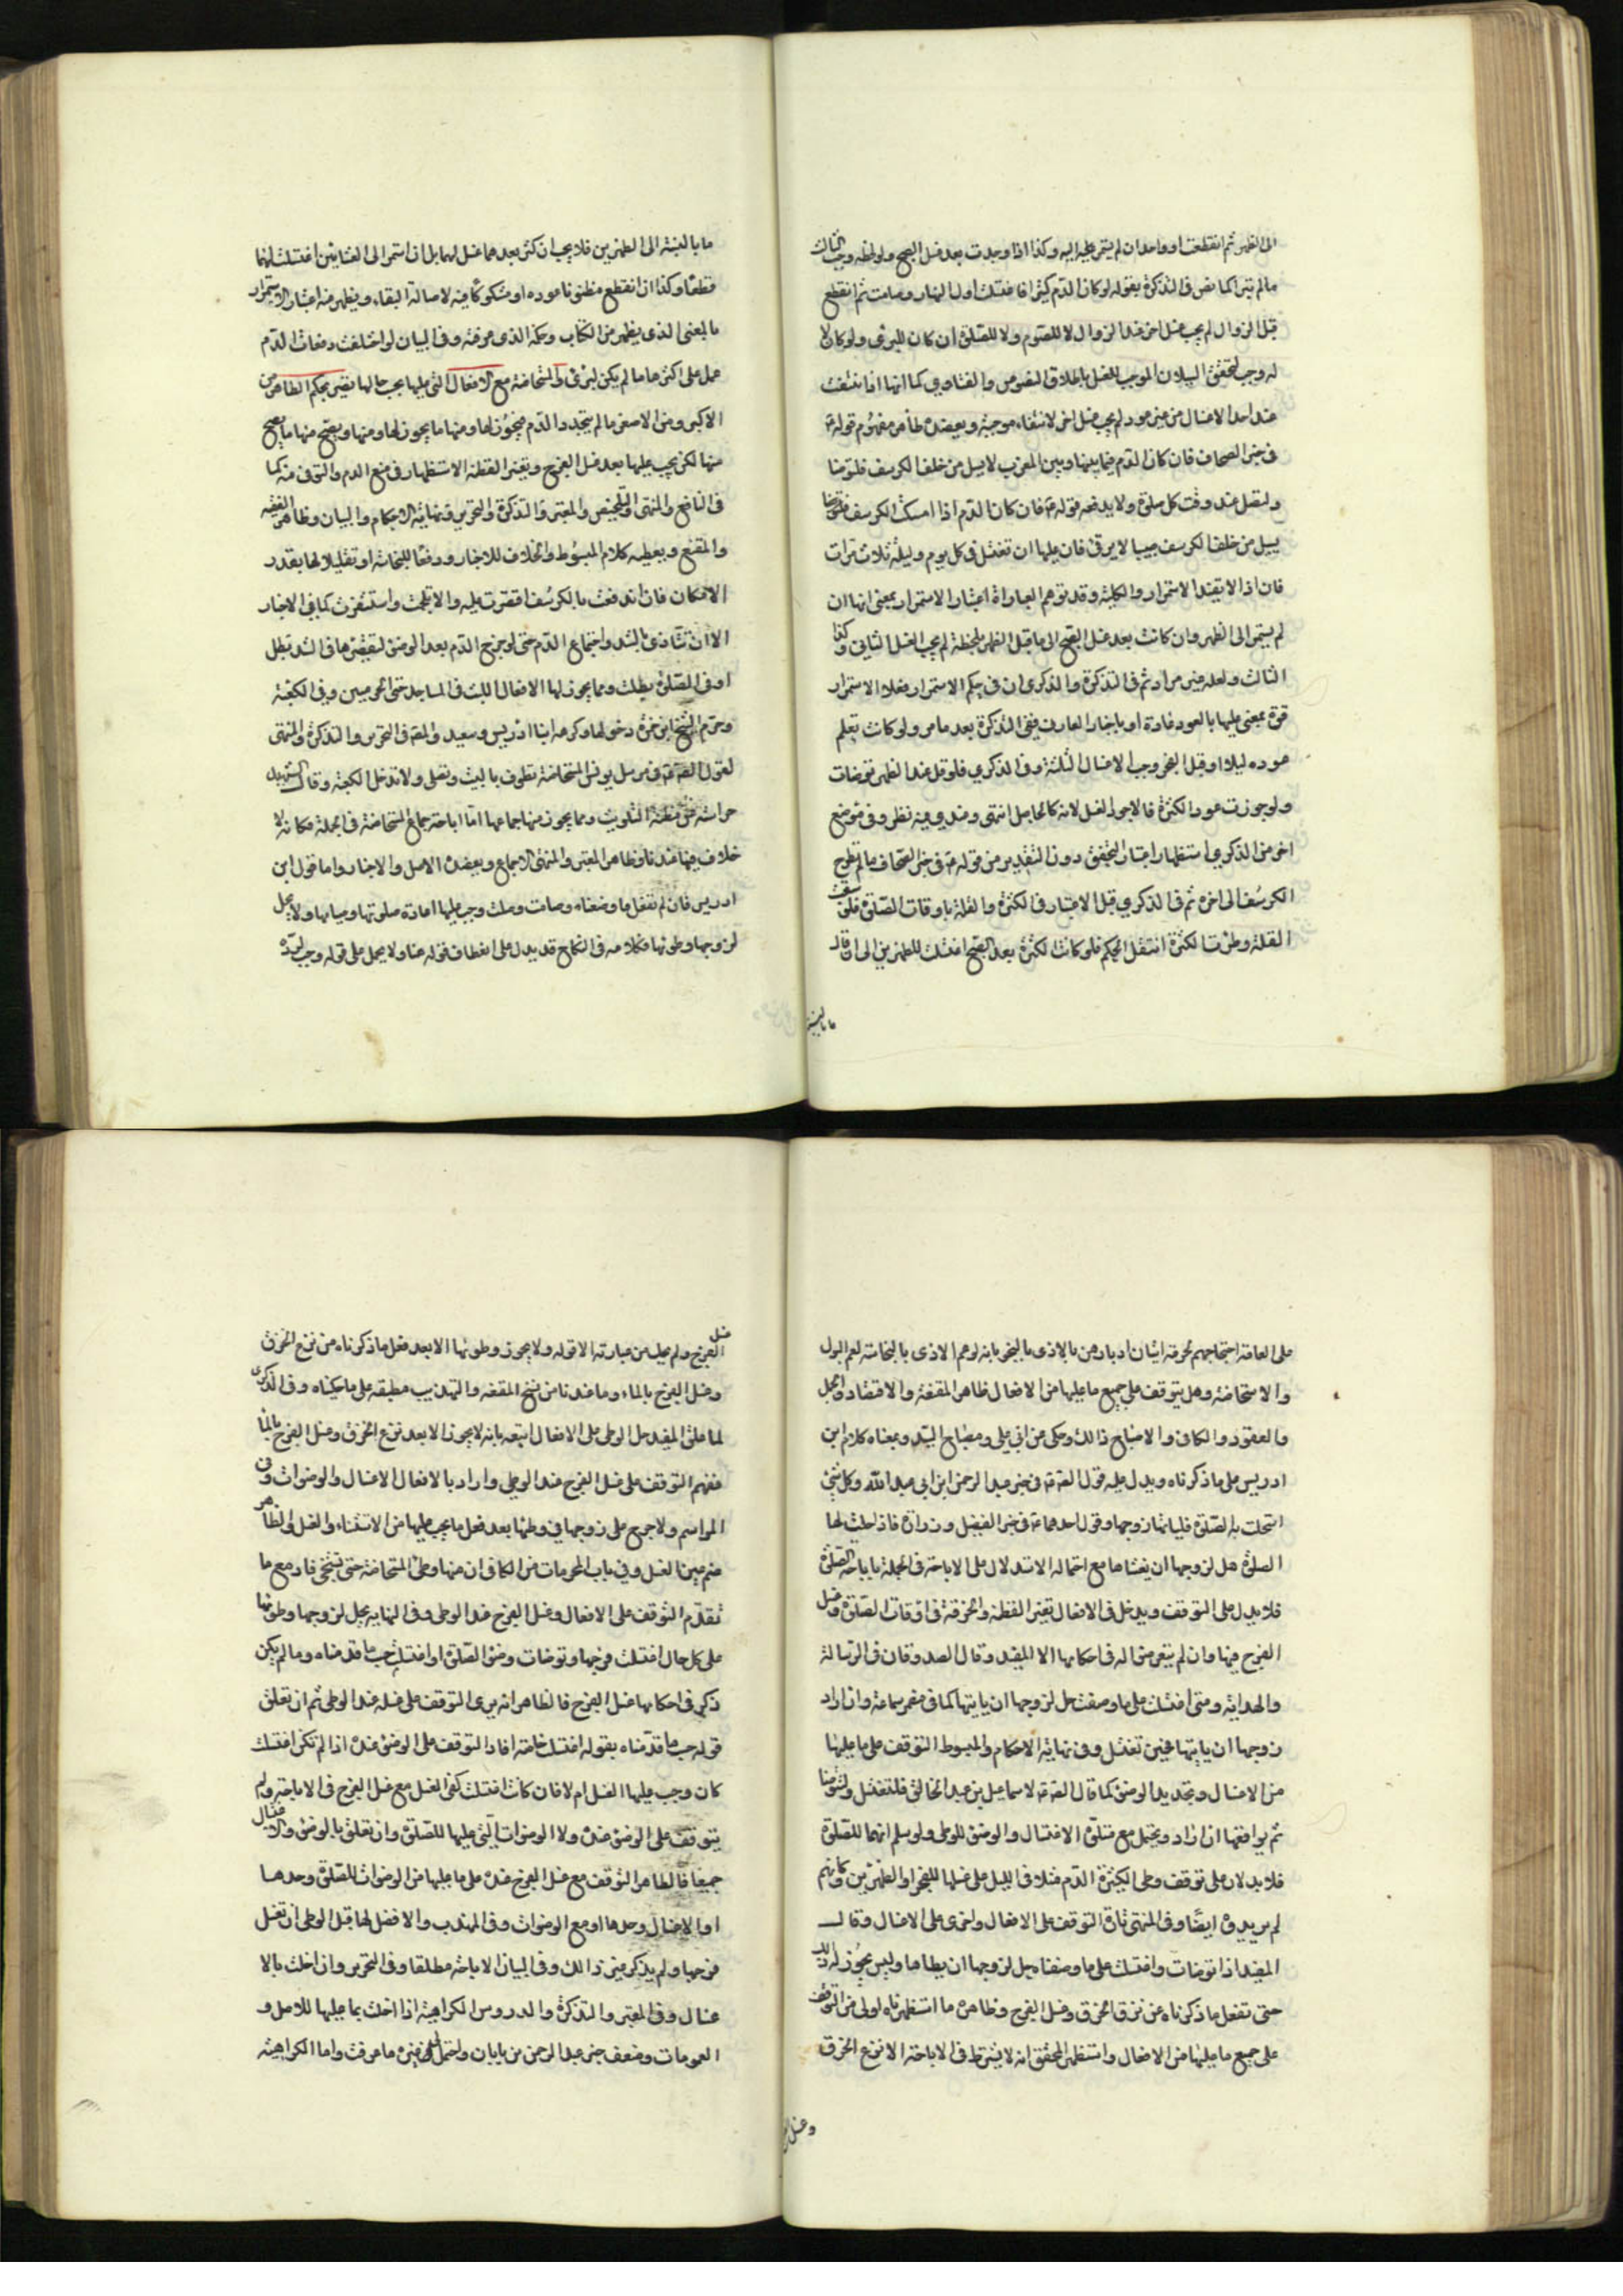 الى الظهر ثم انقطعت او واحد ان لم يستمر عليه اليه وكذا اذا وجدت بعد غسل الصبح ولو لحظة وجب الثالث
ما لم تبرأ كما نص في التذكرة بقوله لو كان الدم كثيرا فاغتسلت اول النهار وصامت ثم انقطع
قبل الزوال لم يجب غسل اخر عند الزوال لا للصوم ولا للصلوة ان كان للبرء ولو كان لا
له وجب لتحقق السيلان الموجب للغسل باطلاق النصوص والفتاوي كما انها اذا
عند احد الاغسال من غير عود لم يجب غسل اخر لانتفاء موجبه ويعضده ظاهر مفهوم قوله ع
في خبر الصحاف فان كان الدم فيما بينها وبين المغرب لا يسيل من خلف الكرسف فلتوضأ
ولتصل عند وقت كل صلوة ولا يدفعه قوله ع فان كان الدم اذا امسك الكرسف
يسيل من خلف الكرسف صبيبا لا يرقى فان عليها ان تغتسل في كل يوم وليلة ثلاث مرات
فان اذا لا يفيد الاستمرار والكلية وقد توهم العبارة اعتبار الاستمرار بمعنى انها ان
لم يستمر الى الظهر وان كانت بعد غسل الصبح الى ما قبل الظهر بلحظة لم يجب الغسل الثاني وكذا
الثالث ولعله غير مراد ثم في التذكرة والذكرى ان في حكم الاستمرار فعلا الاستمرار
قوة بمعنى علمها بالعود عادة او باخبار العارف ففي التذكرة بعد ما مر ولو كانت تعلم
عوده ليلا او قبل الفجر وجب الاغسال الثلثة وفي الذكرى فلو قل عند الظهر توضأت
ولو جوزت عود الكثرة فالاجود الغسل لانه كالحاصل انتهى وعندي فيه نظر وفي موضع
اخر من الذكرى استظهار اعتبار التحقق دون التقدير من قوله ع في خبر الصحاف ما لم تطرح
الكرسف الى اخره ثم في الذكرى قيل الاعتبار في الكثرة والقلة باوقات الصلوة فلو سبقت
القلة وطرئت الكثرة انتقل الحكم فلو كانت الكثرة بعد الصبح اغتسلت للظهرين الى ان قال
ما بالنسبة
ما بالنسبة الى الظهرين فلا يجب ان كثر بعدهما غسل لهما بل ان استمر الى العشائين اغتسلت لهما
قطعا وكذا ان انقطع مظنونا عوده او مشكوكا فيه لاصالة البقاء ويظهر منه اعتبار الاستمرار
بالمعنى الذي يظهر من الكتاب وحكمه الذي عرفته وفي البيان لو اختلفت دفعات الدم
عمل على اكثرها ما لم يكن لبرء والمستحاضة مع الافعال التي عليها بحسب حالها تصير بحكم الطاهر من
الاكبر ومن الاصغر ما لم يتجدد الدم فيجوز لها ومنها ما يجوز لها ومنها ويصح منها ما يصح
منها لكن يجب عليها بعد غسل الفرج وتغيير القطنة الاستظهار في منع الدم والتوقي منه كما
في النافع والمنتهى والتلخيص والمعتبر والتذكرة والتحرير ونهاية الاحكام والبيان وظاهر الفقيه
والمقنع ويعطيه كلام المبسوط والخلاف للاخبار ودفعا للنجاسة او تقليلا لها بقدر
الامكان فان اندفعت بالكرسف اقتصرت عليه والا تلجمت واستثفرت كما في الاخبار
الا ان تتأذى بالشد واجتماع الدم حتى لو خرج الدم بعد الوضوء لتقصيرها في الشد تبطل
او في الصلوة بطلت ومما يجوز لها الافعال اللبث في المساجد حتى الحرمين وفي الكعبة
وحرم الشيخ ابن حمزة دخولها وكرهه ابنا ادريس وسعيد والمص في التحرير والتذكرة والمنتهى
لقول الصادق ع في مرسل يونس المستحاضة تطوف بالبيت وتصلي ولا تدخل الكعبة وقال الشهيد
حراسة عن مظنة التلويث ومما يجوز منها جماعها اما اباحة جماع المستحاضة في الجملة فكانه لا
خلاف فيها عندنا وظاهر المعتبر والمنتهى الاجماع ويعضده الاصل والاخبار واما قول ابن
ادريس فان لم تفعل ما وصفناه وصامت وصلت وجب عليها اعادة صلوتها وصيامها ولا يحل
لزوجها وطؤها فكلامه في النكاح قد يدل على انعطاف قوله هنا ولا يحمل على قوله وجب
على العامة احتجاجهم لحرمة اتيان ادبارهن بالاذى بالنجو بانه لو عم الاذى بالنجاسة لعم البول
والاستحاضة وهل يتوقف على جميع ما عليها من الافعال ظاهر المقنعة والاقتصاد والجمل
والعقود والكافي والاصباح ذلك وحكى عن ابي علي ومصباح السيد وبمعناه كلام ابن
ادريس على ما ذكرناه ويدل عليه قول الصادق ع في خبر عبد الرحمن ابن ابي عبد الله وكل شئ
استحلت به الصلوة فلياتها زوجها وقول احدهما ع في خبر الفضيل وزرارة فاذا حلت لها
الصلوة حل لزوجها ان يغشاها مع احتماله الاستدلال على الاباحة في الجملة باباحة الصلوة
فلا يدل على التوقف ويدخل في الافعال تغيير القطنة والخرقة في اوقات الصلوة وغسل
الفرج فيها وان لم يتعرض له في احكامها الا المفيد وقال الصدوقان في الرسالة
والهداية ومتى اغتسلت على ما وصفت حل لزوجها ان ياتيها كما في مضمر سماعة وان اراد
زوجها ان ياتيها فحين تغتسل وفي نهاية الاحكام والمبسوط التوقف على ما عليها
من الاغسال وتجديد الوضوء كما قال الصادق ع لاسماعيل بن عبد الخالق فلتغتسل ولتتوضأ
ثم يواقعها ان اراد ويحتمل مع صلوح الاغتسال والوضوء للوطي ولو سلم انهما للصلوة
فلا يدلان على توقف وطي الكثيرة الدم مثلا في الليل على غسلها للفجر او الظهرين وكانهم
لم يريدوه ايضا وفي المنتهى تارة التوقف على الافعال واخرى على الاغسال وقال
المفيد اذا توضأت واغتسلت على ما وصفناه حل لزوجها ان يطاها وليس يجوز له ذلك
حتى تفعل ما ذكرناه عن نزع الخرق وغسل الفرج وظاهره ما استظهرناه اولى من التوقف
على جميع ما عليها من الافعال واستظهر المحقق انه لا يشترط في الاباحة الا نزع الخرق
وغسل
غسل
الفرج ولم يحك من عبارته الا قوله ولا يجوز وطؤها الا بعد فعل ما ذكرناه من نزع الخرق
وغسل الفرج بالماء وما عندنا من نسخ المقنعة والتهذيب مطبقة على ما حكيناه وفي الذكرى
لما علق المفيد حل الوطي على الافعال اتبعه بانه لا يجوز الا بعد نزع الخرق وغسل الفرج بالماء
ففهم التوقف على غسل الفرج عند الوطي واراد بالافعال الاغسال والوضوات وفي
المراسم ولا حرج على زوجها في وطئها بعد فعل ما يجب عليها من الاستثفار والغسل والظاهر
ضم عين الغسل وفي باب المحرمات من الكافي ان منها وطئ المستحاضة حتى تستنجي فاد مع ما
تقدم التوقف على الافعال وغسل الفرج عند الوطي وفي النهاية يحل لزوجها وطؤها
على كل حال اغتسلت فرجها وتوضات وضوء الصلوة او اغتسلت حسب ما قدمناه وما لم يكن
ذكر في احكامها غسل الفرج فالظاهر انه يرى التوقف على غسله عند الوطي ثم ان تعلق
قوله حسب ما قدمناه بقوله اغتسلت خاصة افاد التوقف على الوضوء عنده اذا لم تكن اغتسلت
كان وجب عليها الغسل ام لا فان كانت اغتسلت كفى الغسل مع غسل الفرج في الاباحة ولم
يتوقف على الوضوء عنده ولا الوضوات التي عليها للصلوة وان تعلق بالوضوء والاغتسال
جميعا فالظاهر التوقف مع غسل الفرج عنده على ما عليها من الوضوات للصلوة وحدها
او الاغتسال وحدها او مع الوضوات وفي المهذب والافضل لها قبل الوطي ان تغسل
فرجها ولم يذكر غير ذلك وفي البيان الاباحة مطلقا وفي التحرير وان اخلت بالا
غسال وفي المعتبر والتذكرة والدروس الكراهية اذا اخلت بما عليها للاصل و
العمومات وضعف خبر عبد الرحمن من بابان واحتمال غيره ما عرفت واما الكراهية